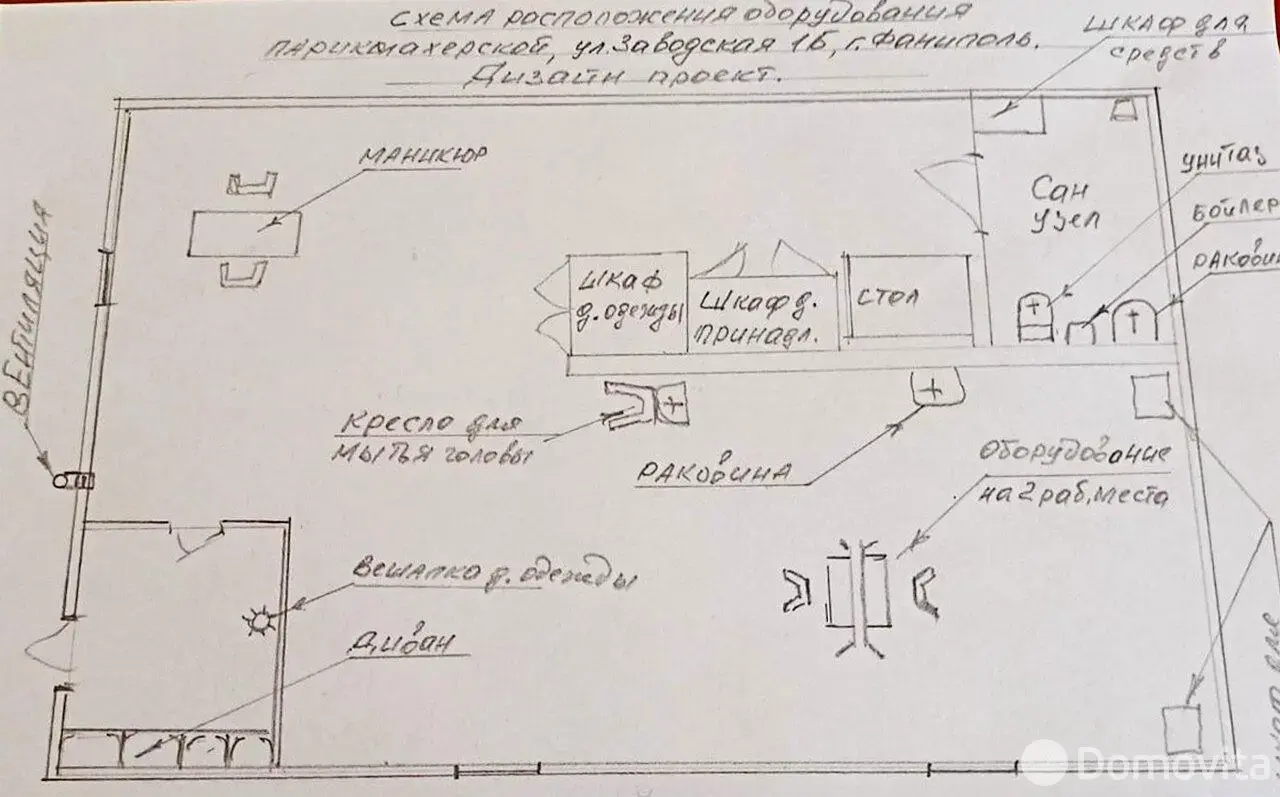 Схема расположения оборудования
парикмахерской, ул. Заводская 1Б, г. Фаниполь.
Дизайн проект.
Шкаф для
средств
Маникюр
унитаз
Сан
узел
бойлер
раковин
Вентиляция
Шкаф
д. одежды
Шкаф д.
принадл.
стол
Кресло для
мытья головы
Раковина
Оборудование
на 2 раб. места
Вешалка д. одежды
Диван
Domovita